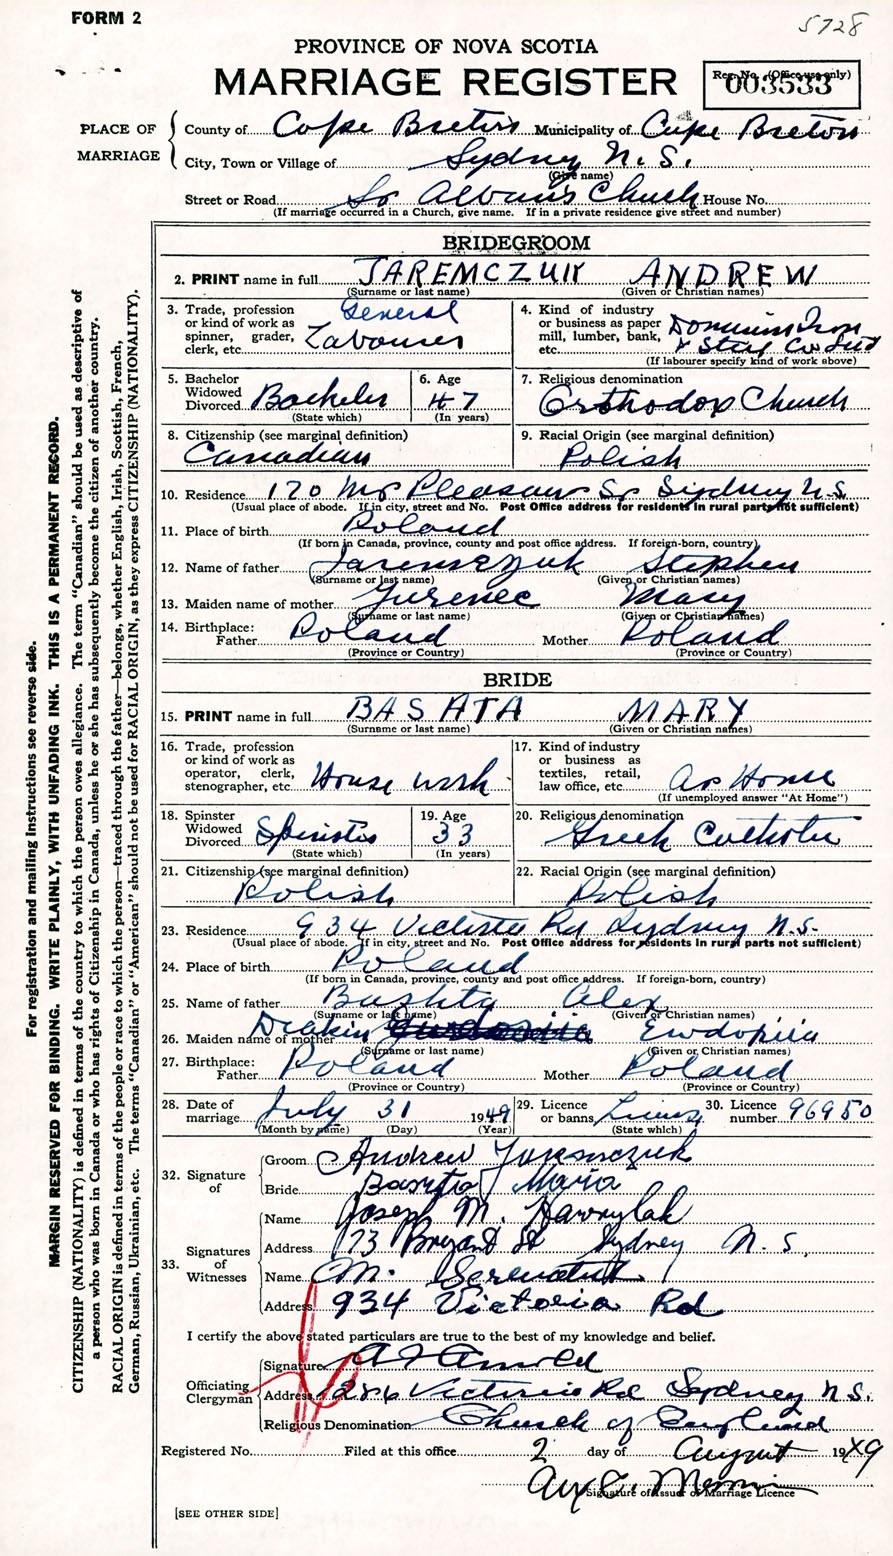 FORM 2
5728
PROVINCE OF NOVA SCOTIA
MARRIAGE REGISTER
Reg. No. (Office use only)
003533
PLACE OF MARRIAGE
County of Cape Breton Municipality of Cape Breton
City, Town or Village of Sydney N. S.
(Give name)
Street or Road St Alban's Church House No.
(If marriage occurred in a Church, give name. If in a private residence give street and number)
BRIDEGROOM
2. PRINT name in full JAREMCZUK ANDREW
(Surname or last name) (Given or Christian names)
3. Trade, profession or kind of work as spinner, grader, clerk, etc. General Labourer
4. Kind of industry or business as paper mill, lumber, bank, etc. Dominion Iron & Steel Co Ltd
(If labourer specify kind of work above)
5. Bachelor Widowed Divorced Bachelor
(State which)
6. Age 47
(In years)
7. Religious denomination Orthodox Church
8. Citizenship (see marginal definition) Canadian
9. Racial Origin (see marginal definition) Polish
10. Residence 170 Mt Pleasant St Sydney N.S.
(Usual place of abode. If in city, street and No. Post Office address for residents in rural parts not sufficient)
11. Place of birth Poland
(If born in Canada, province, county and post office address. If foreign-born, country)
12. Name of father Jaremczuk Stephen
(Surname or last name) (Given or Christian names)
13. Maiden name of mother Jurenec Mary
(Surname or last name) (Given or Christian names)
14. Birthplace: Father Poland Mother Poland
(Province or Country) (Province or Country)
BRIDE
15. PRINT name in full BASATA MARY
(Surname or last name) (Given or Christian names)
16. Trade, profession or kind of work as operator, clerk, stenographer, etc. House work
17. Kind of industry or business as textiles, retail, law office, etc. At Home
(If unemployed answer "At Home")
18. Spinster Widowed Divorced Spinster
(State which)
19. Age 33
(In years)
20. Religious denomination Greek Catholic
21. Citizenship (see marginal definition) Polish
22. Racial Origin (see marginal definition) Polish
23. Residence 934 Victoria Rd Sydney N.S.
(Usual place of abode. If in city, street and No. Post Office address for residents in rural parts not sufficient)
24. Place of birth Poland
(If born in Canada, province, county and post office address. If foreign-born, country)
25. Name of father Bashta Alex
(Surname or last name) (Given or Christian names)
26. Maiden name of mother Deakin Ewdopiia
(Surname or last name) (Given or Christian names)
27. Birthplace: Father Poland Mother Poland
(Province or Country) (Province or Country)
28. Date of marriage July 31 1949
(Month by name) (Day) (Year)
29. Licence or banns
(State which)
30. Licence number 96950
32. Signature of
Groom Andrew Jaremczuk
Bride Basyta Maria
33. Signatures of Witnesses
Name Joseph M. Hawrylak
Address 73 Bryant St Sydney N. S.
Name M.
Address 934 Victoria Rd
I certify the above stated particulars are true to the best of my knowledge and belief.
Officiating Clergyman
Signature A F Arnold
Address Victoria Rd Sydney N.S.
Religious Denomination Church of England
Registered No. Filed at this office 2 day of August 1949
Signature of Issuer of Marriage Licence
[SEE OTHER SIDE]
For registration and mailing instructions see reverse side.
MARGIN RESERVED FOR BINDING. WRITE PLAINLY, WITH UNFADING INK. THIS IS A PERMANENT RECORD.
CITIZENSHIP (NATIONALITY) is defined in terms of the country to which the person owes allegiance. The term "Canadian" should be used as descriptive of
a person who was born in Canada or who has rights of Citizenship in Canada, unless he or she has subsequently become the citizen of another country.
RACIAL ORIGIN is defined in terms of the people or race to which the person—traced through the father—belongs, whether English, Irish, Scottish, French,
German, Russian, Ukrainian, etc. The terms "Canadian" or "American" should not be used for RACIAL ORIGIN, as they express CITIZENSHIP (NATIONALITY).